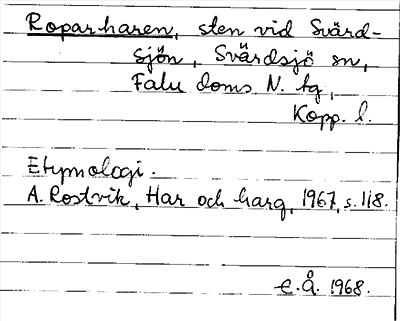 Roparharen, sten vid Svärd-
sjön, Svärdsjö sn,
Falu doms. N. tg,
Kopp. l.
Etymologi.
A. Rostvik, Har och harg, 1967, s. 118.
E.Å. 1968.